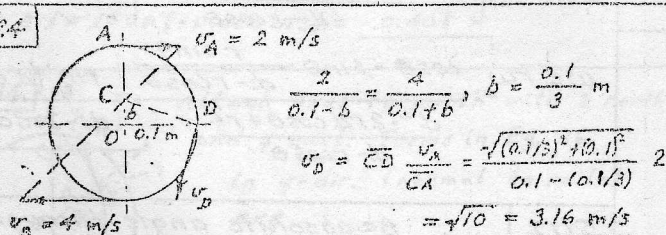 A v_A = 2 m/s
C
b
D
O 0.1 m
v_D
v_B = 4 m/s
2/(0.1-b) = 4/(0.1+b), b = 0.1/3 m
v_D = CD v_A/CA = √((0.1/3)²+(0.1)²)/(0.1-(0.1/3)) 2
= √10 = 3.16 m/s